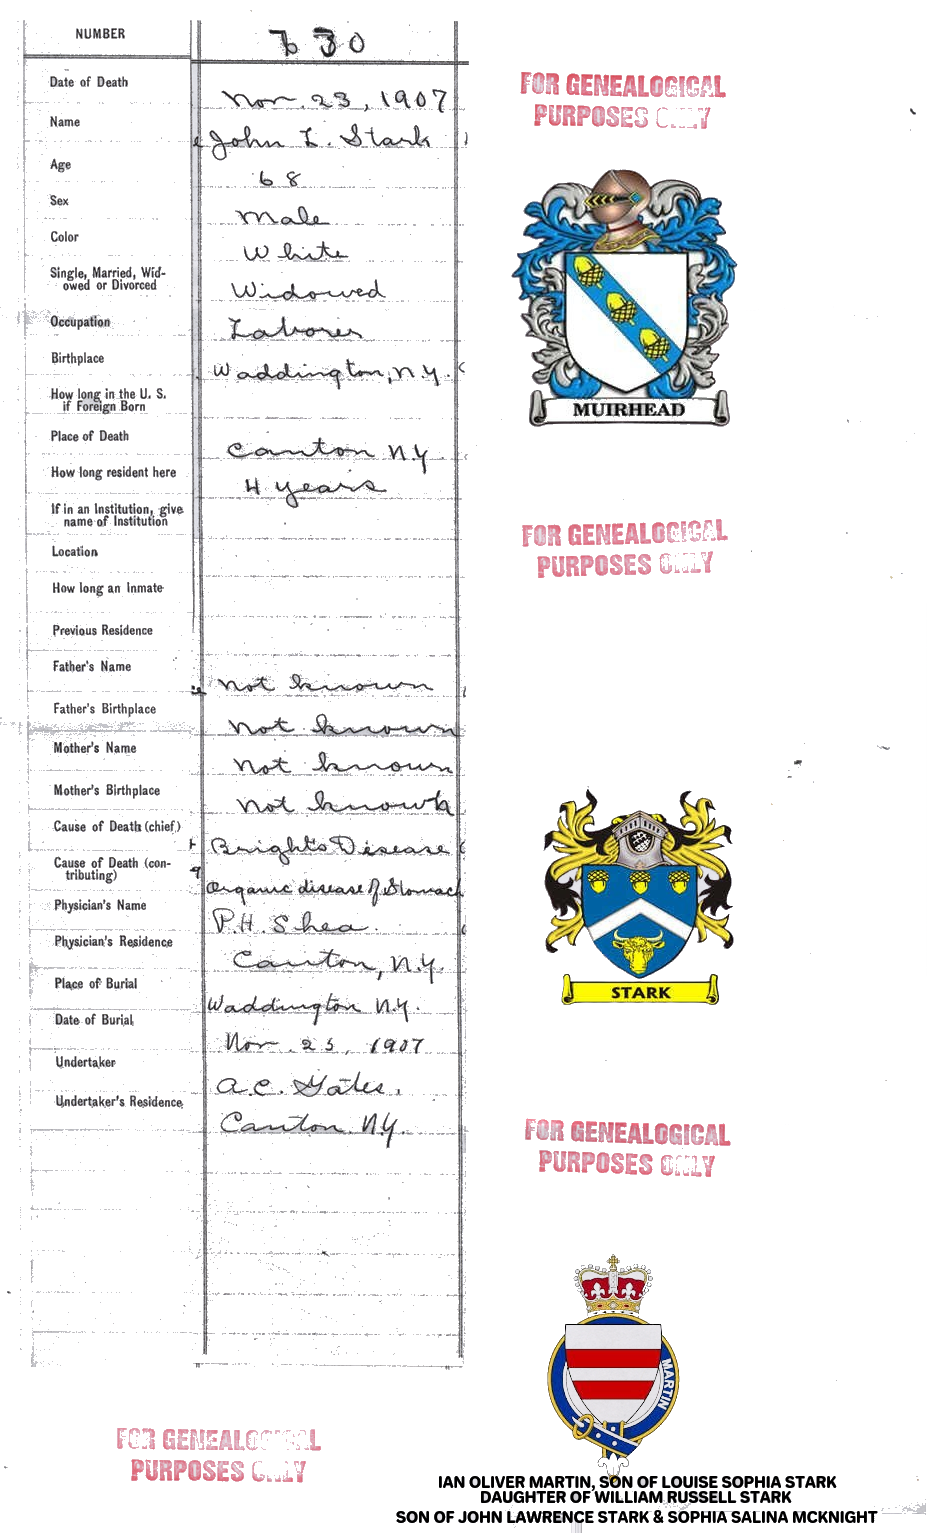 NUMBER 730
Date of Death Nov. 23, 1907
Name John L. Stark
Age 68
Sex Male
Color White
Single, Married, Wid-
owed or Divorced Widowed
Occupation Laborer
Birthplace Waddington, N.Y.
How long in the U. S.
if Foreign Born
Place of Death Canton N.Y.
How long resident here 4 years
If in an Institution, give
name of Institution
Location
How long an Inmate
Previous Residence
Father's Name Not known
Father's Birthplace Not known
Mother's Name Not known
Mother's Birthplace Not known
Cause of Death (chief) Brights Disease
Cause of Death (con-
tributing) Organic disease of Stomach
Physician's Name P.H. Shea.
Physician's Residence Canton, N.Y.
Place of Burial Waddington N.Y.
Date of Burial Nov. 25, 1907
Undertaker A.C. Gates.
Undertaker's Residence Canton N.Y.
FOR GENEALOGICAL
PURPOSES ONLY
MUIRHEAD
FOR GENEALOGICAL
PURPOSES ONLY
STARK
FOR GENEALOGICAL
PURPOSES ONLY
MARTIN
FOR GENEALOGICAL
PURPOSES ONLY
IAN OLIVER MARTIN, SON OF LOUISE SOPHIA STARK
DAUGHTER OF WILLIAM RUSSELL STARK
SON OF JOHN LAWRENCE STARK & SOPHIA SALINA MCKNIGHT